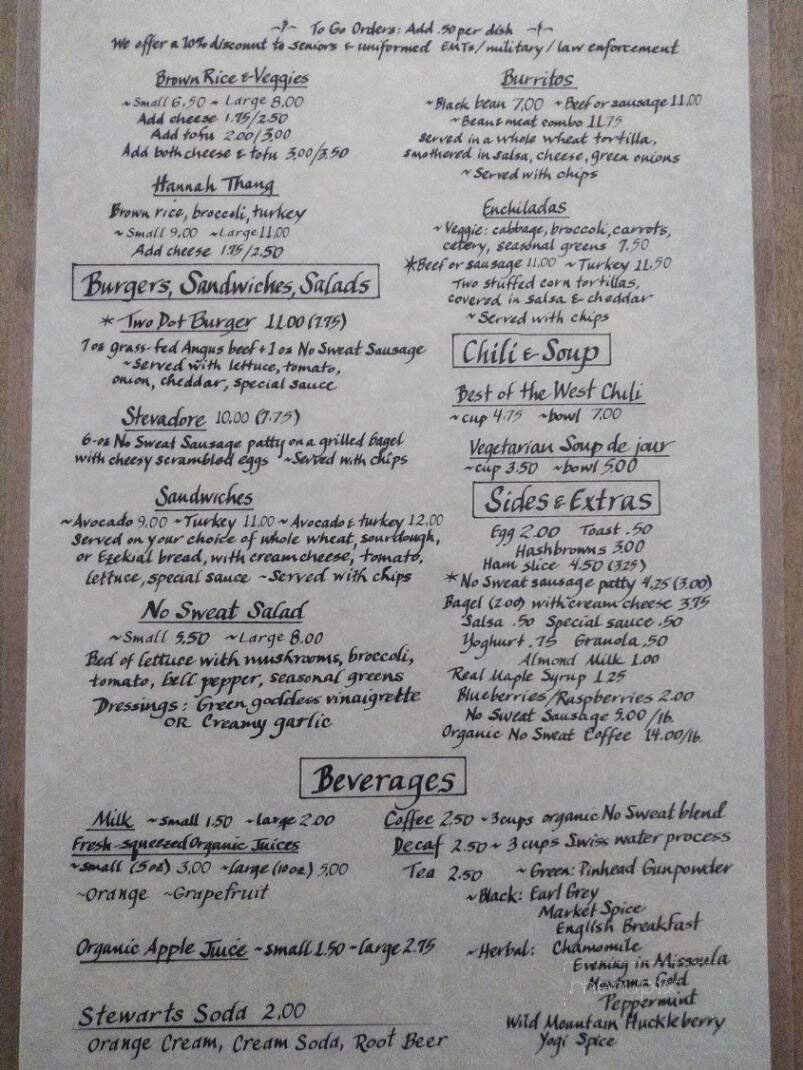 To Go Orders: Add .50 per dish
We offer a 10% discount to seniors & uniformed EMTs/military/law enforcement
Brown Rice & Veggies
~Small 6.50 ~ Large 8.00
Add cheese 1.75/2.50
Add tofu 2.00/3.00
Add both cheese & tofu 3.00/3.50
Hannah Thang
Brown rice, broccoli, turkey
~Small 9.00 ~Large 11.00
Add cheese 1.75/2.50
Burgers, Sandwiches, Salads
* Two Dot Burger 11.00 (7.75)
7 oz grass-fed Angus beef + 1 oz No Sweat Sausage
~Served with lettuce, tomato,
onion, cheddar, special sauce
Stevadore 10.00 (7.75)
6-oz No Sweat Sausage patty on a grilled bagel
with cheesy scrambled eggs ~Served with chips
Sandwiches
~Avocado 9.00 ~Turkey 11.00 ~Avocado & turkey 12.00
Served on your choice of whole wheat, sourdough,
or Ezekial bread, with cream cheese, tomato,
lettuce, special sauce ~Served with chips
No Sweat Salad
~Small 5.50 ~Large 8.00
Bed of lettuce with mushrooms, broccoli,
tomato, bell pepper, seasonal greens
Dressings: Green goddess vinaigrette
OR Creamy garlic
Burritos
~Black bean 7.00 ~Beef or sausage 11.00
~Bean & meat combo 11.75
Served in a whole wheat tortilla,
smothered in salsa, cheese, green onions
~Served with chips
Enchiladas
~Veggie: cabbage, broccoli, carrots,
celery, seasonal greens 7.50
*Beef or sausage 11.00 ~Turkey 11.50
Two stuffed corn tortillas,
covered in salsa & cheddar
~Served with chips
Chili & Soup
Best of the West Chili
~cup 4.75 ~bowl 7.00
Vegetarian Soup de jour
~cup 3.50 ~bowl 5.00
Sides & Extras
Egg 2.00 Toast .50
Hashbrowns 3.00
Ham slice 4.50 (3.25)
*No Sweat sausage patty 4.25 (3.00)
Bagel (2.00) with cream cheese 3.75
Salsa .50 Special sauce .50
Yoghurt .75 Granola .50
Almond Milk 1.00
Real Maple Syrup 1.25
Blueberries/Raspberries 2.00
No Sweat Sausage 5.00/lb.
Organic No Sweat Coffee 14.00/lb.
Beverages
Milk ~small 1.50 ~large 2.00
Fresh-squeezed Organic Juices
~small (5oz) 3.00 ~large (10oz) 5.00
~Orange ~Grapefruit
Organic Apple Juice ~small 1.50 ~large 2.75
Stewarts Soda 2.00
Orange Cream, Cream Soda, Root Beer
Coffee 2.50 ~3 cups organic No Sweat blend
Decaf 2.50 ~ 3 cups Swiss water process
Tea 2.50 ~Green: Pinhead Gunpowder
~Black: Earl Grey
Market Spice
English Breakfast
~Herbal: Chamomile
Evening in Missoula
Montana Gold
Peppermint
Wild Mountain Huckleberry
Yogi Spice